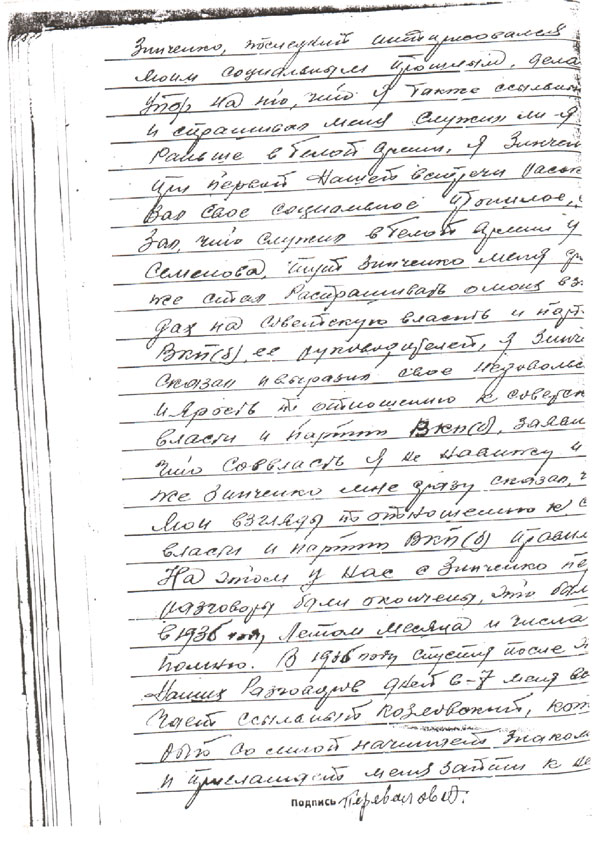 Зинченко, последний интирисовался
моим социальным прошлым, дела
упор на то, что я также ссыльны
и спрашивал меня служил ли я
раньше в белой армии, я Зинчен
при первой нашей встречи расск
зал свое социальное прошлое,
зал, что служил в белой армии у
Семенова, тут Зинченко меня
же стал распрашивать о моих взг
дах на советскую власть и парт
ВКП(б), ее руководителей, я Зинче
сказал и выразил свое недовольс
и ярость по отношению к советск
власти и партии ВКП(б), заяви
что соввласть я не навижу и
же Зинченко мне сразу сказал, ч
мои взгляды по отношению к с
власти и партии ВКП(б) правил
На этом у нас с Зинченко пе
разговоры были окончены, это был
в 1936 году, летом месяца и числа
помню. В 1936 году спустя после
наших разговоров дней 6-7 меня вс
чает ссыльный Козловский, ко
рый со мной начинает знаком
и приглашает меня зайти к не
Подпись Перевалов